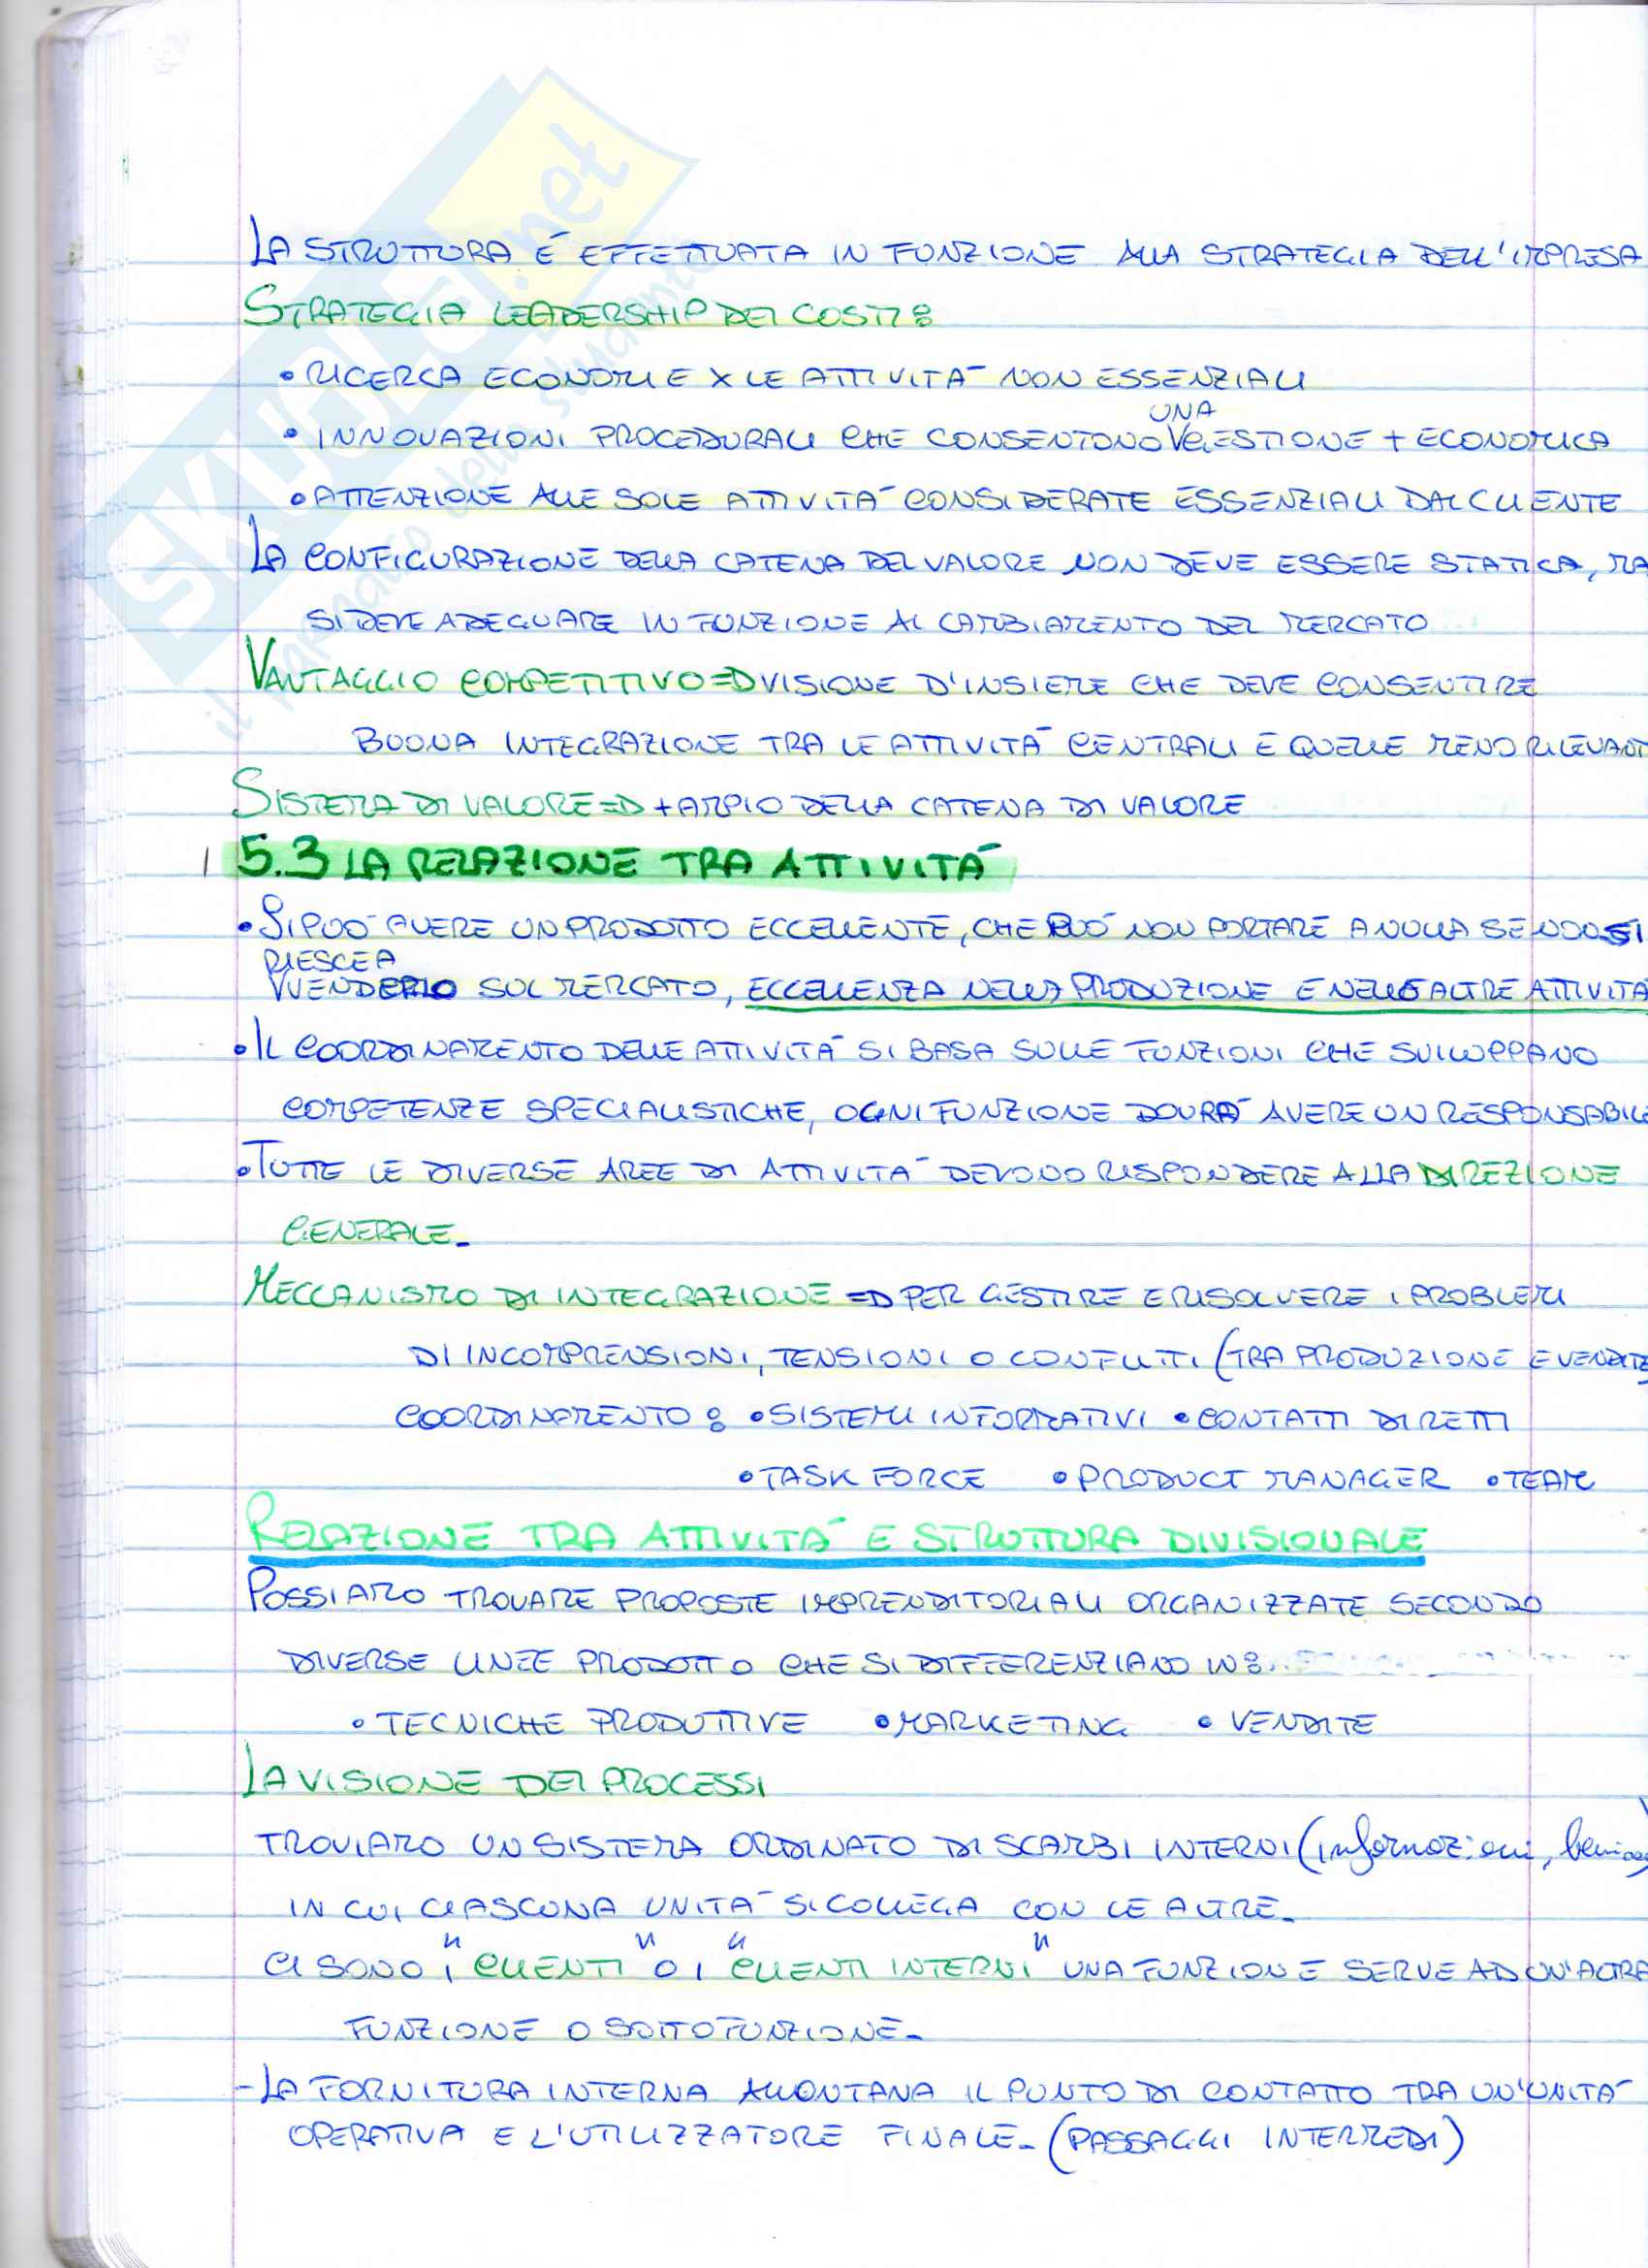 LA STRUTTURA É EFFETTUATA IN FUNZIONE ALLA STRATEGIA DELL'IMPRESA
STRATEGIA LEADERSHIP DEI COSTI:
• RICERCA ECONOMIE X LE ATTIVITÁ NON ESSENZIALI
UNA
• INNOVAZIONI PROCEDURALI CHE CONSENTONO GESTIONE + ECONOMICA
• ATTENZIONE ALLE SOLE ATTIVITÁ CONSIDERATE ESSENZIALI DAL CLIENTE
LA CONFIGURAZIONE DELLA CATENA DEL VALORE NON DEVE ESSERE STATICA, MA
SI DEVE ADEGUARE IN FUNZIONE AL CAMBIAMENTO DEL MERCATO
VANTAGGIO COMPETITIVO => VISIONE D'INSIEME CHE DEVE CONSENTIRE
BUONA INTEGRAZIONE TRA LE ATTIVITÁ CENTRALI E QUELLE MENO RILEVANTI
SISTEMA DI VALORE => + AMPIO DELLA CATENA DI VALORE
5.3 LA RELAZIONE TRA ATTIVITÁ
• SI PUÓ AVERE UN PRODOTTO ECCELLENTE, CHE PUÓ NON PORTARE A NULLA SE NON SI
RIESCE A
VENDERLO SUL MERCATO, ECCELLENZA NELLA PRODUZIONE E NELLE ALTRE ATTIVITÁ
• IL COORDINAMENTO DELLE ATTIVITÁ SI BASA SULLE FUNZIONI CHE SVILUPPANO
COMPETENZE SPECIALISTICHE, OGNI FUNZIONE DOVRÁ AVERE UN RESPONSABILE
• TUTTE LE DIVERSE AREE DI ATTIVITÁ DEVONO RISPONDERE ALLA DIREZIONE
GENERALE.
MECCANISMO DI INTEGRAZIONE => PER GESTIRE E RISOLVERE I PROBLEMI
DI INCOMPRENSIONI, TENSIONI O CONFLITTI (TRA PRODUZIONE E VENDITE)
COORDINAMENTO: • SISTEMI INFORMATIVI • CONTATTI DIRETTI
• TASK FORCE • PRODUCT MANAGER • TEAM
RELAZIONE TRA ATTIVITÁ E STRUTTURA DIVISIONALE
POSSIAMO TROVARE PROPOSTE IMPRENDITORIALI ORGANIZZATE SECONDO
DIVERSE LINEE PRODOTTO CHE SI DIFFERENZIANO IN:
• TECNICHE PRODUTTIVE • MARKETING • VENDITE
LA VISIONE DEI PROCESSI
TROVIAMO UN SISTEMA ORDINATO DI SCAMBI INTERNI (informazioni, beni ...)
IN CUI CIASCUNA UNITÁ SI COLLEGA CON LE ALTRE.
CI SONO I "CLIENTI" O I "CLIENTI INTERNI" UNA FUNZIONE SERVE AD UN'ALTRA
FUNZIONE O SOTTOFUNZIONE.
- LA FORNITURA INTERNA ALLONTANA IL PUNTO DI CONTATTO TRA UN'UNITÁ
OPERATIVA E L'UTILIZZATORE FINALE. (PASSAGGI INTERMEDI)
SKUOLA.net
il paradiso dello studente